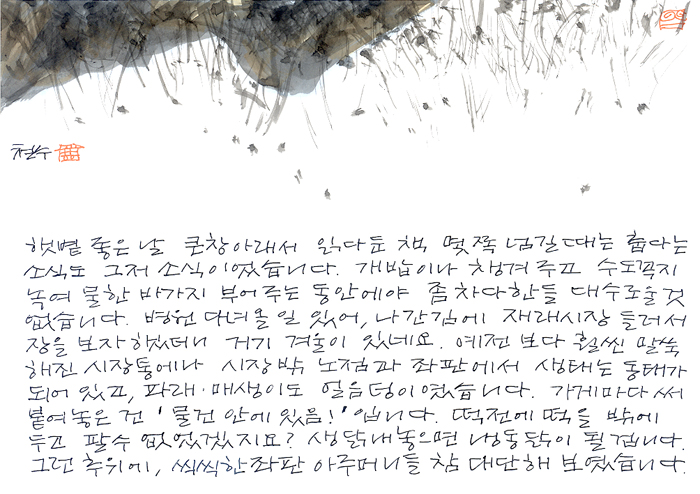 철수
햇볕 좋은 날 큰창아래서 읽다 둔 책 몇쪽 넘길 때는 춥다는
소식도 그저 소식이었습니다. 개밥이나 챙겨주고 수도꼭지
녹여 물한 바가지 부어주는 동안에야 좀 차다한들 대수로울것
없습니다. 병원 다녀올 일 있어, 나간김에 재래시장 들러서
장을 보자 하였더니 거기 겨울이 있네요. 예전 보다 훨씬 말쑥
해진 시장통에나 시장밖 노점과 좌판에서 생태는 동태가
되어 있고, 파래·매생이도 얼음덩이였습니다. 가게마다 써
붙여놓은 건 '물건 안에 있음!' 입니다. 떡전에 떡을 밖에
두고 팔수 없었겠지요? 생닭내놓으면 냉동닭이 될겁니다.
그런 추위에, 씩씩한 좌판 아주머니들 참 대단해 보였습니다.